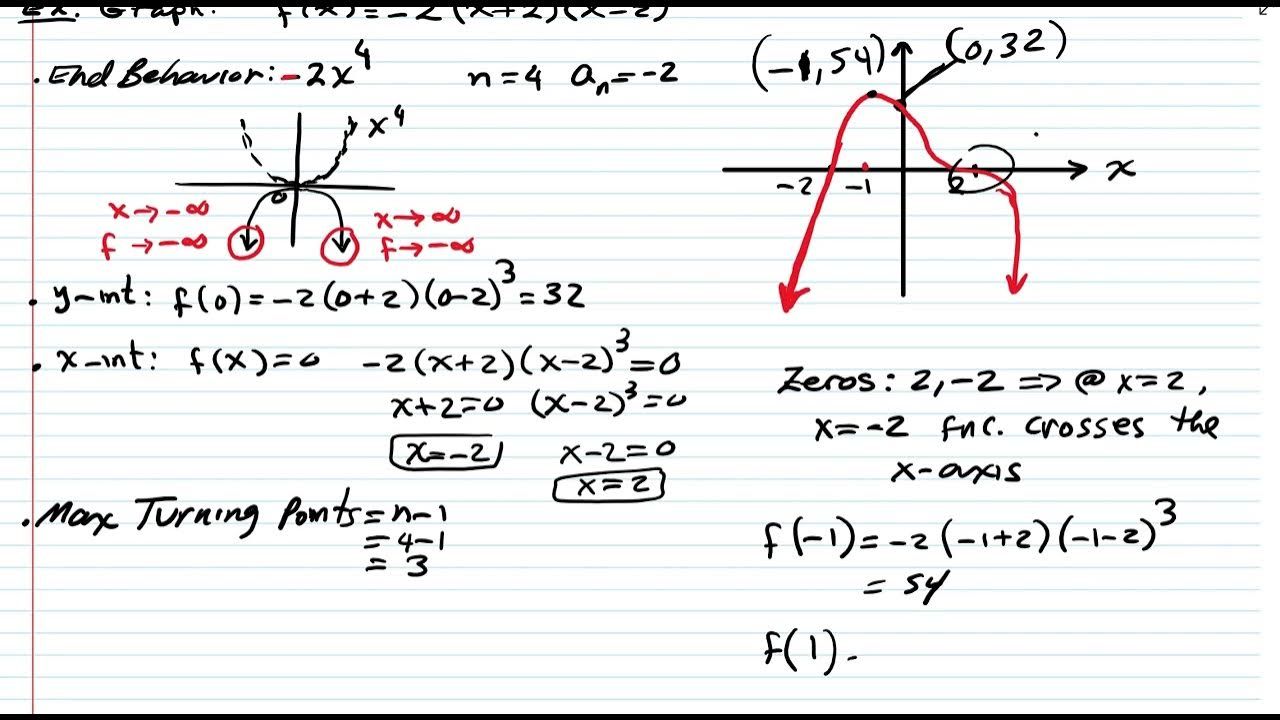 Ex. Graph: f(x) = -2(x+2)(x-2)
. End Behavior: -2x⁴ n=4 aₙ=-2
x⁴
0
x→-∞ x→∞
f→-∞ f→-∞
. y-int: f(0)=-2(0+2)(0-2)³=32
. x-int: f(x)=0 -2(x+2)(x-2)³=0
x+2=0 (x-2)³=0
x=-2 x-2=0
x=2
. Max Turning Points = n-1
= 4-1
= 3
(-1,54) (0,32)
x
-2 -1 2
Zeros: 2,-2 => @ x=2,
x=-2 fnc. crosses the
x-axis
f(-1)=-2(-1+2)(-1-2)³
= 54
f(1)-